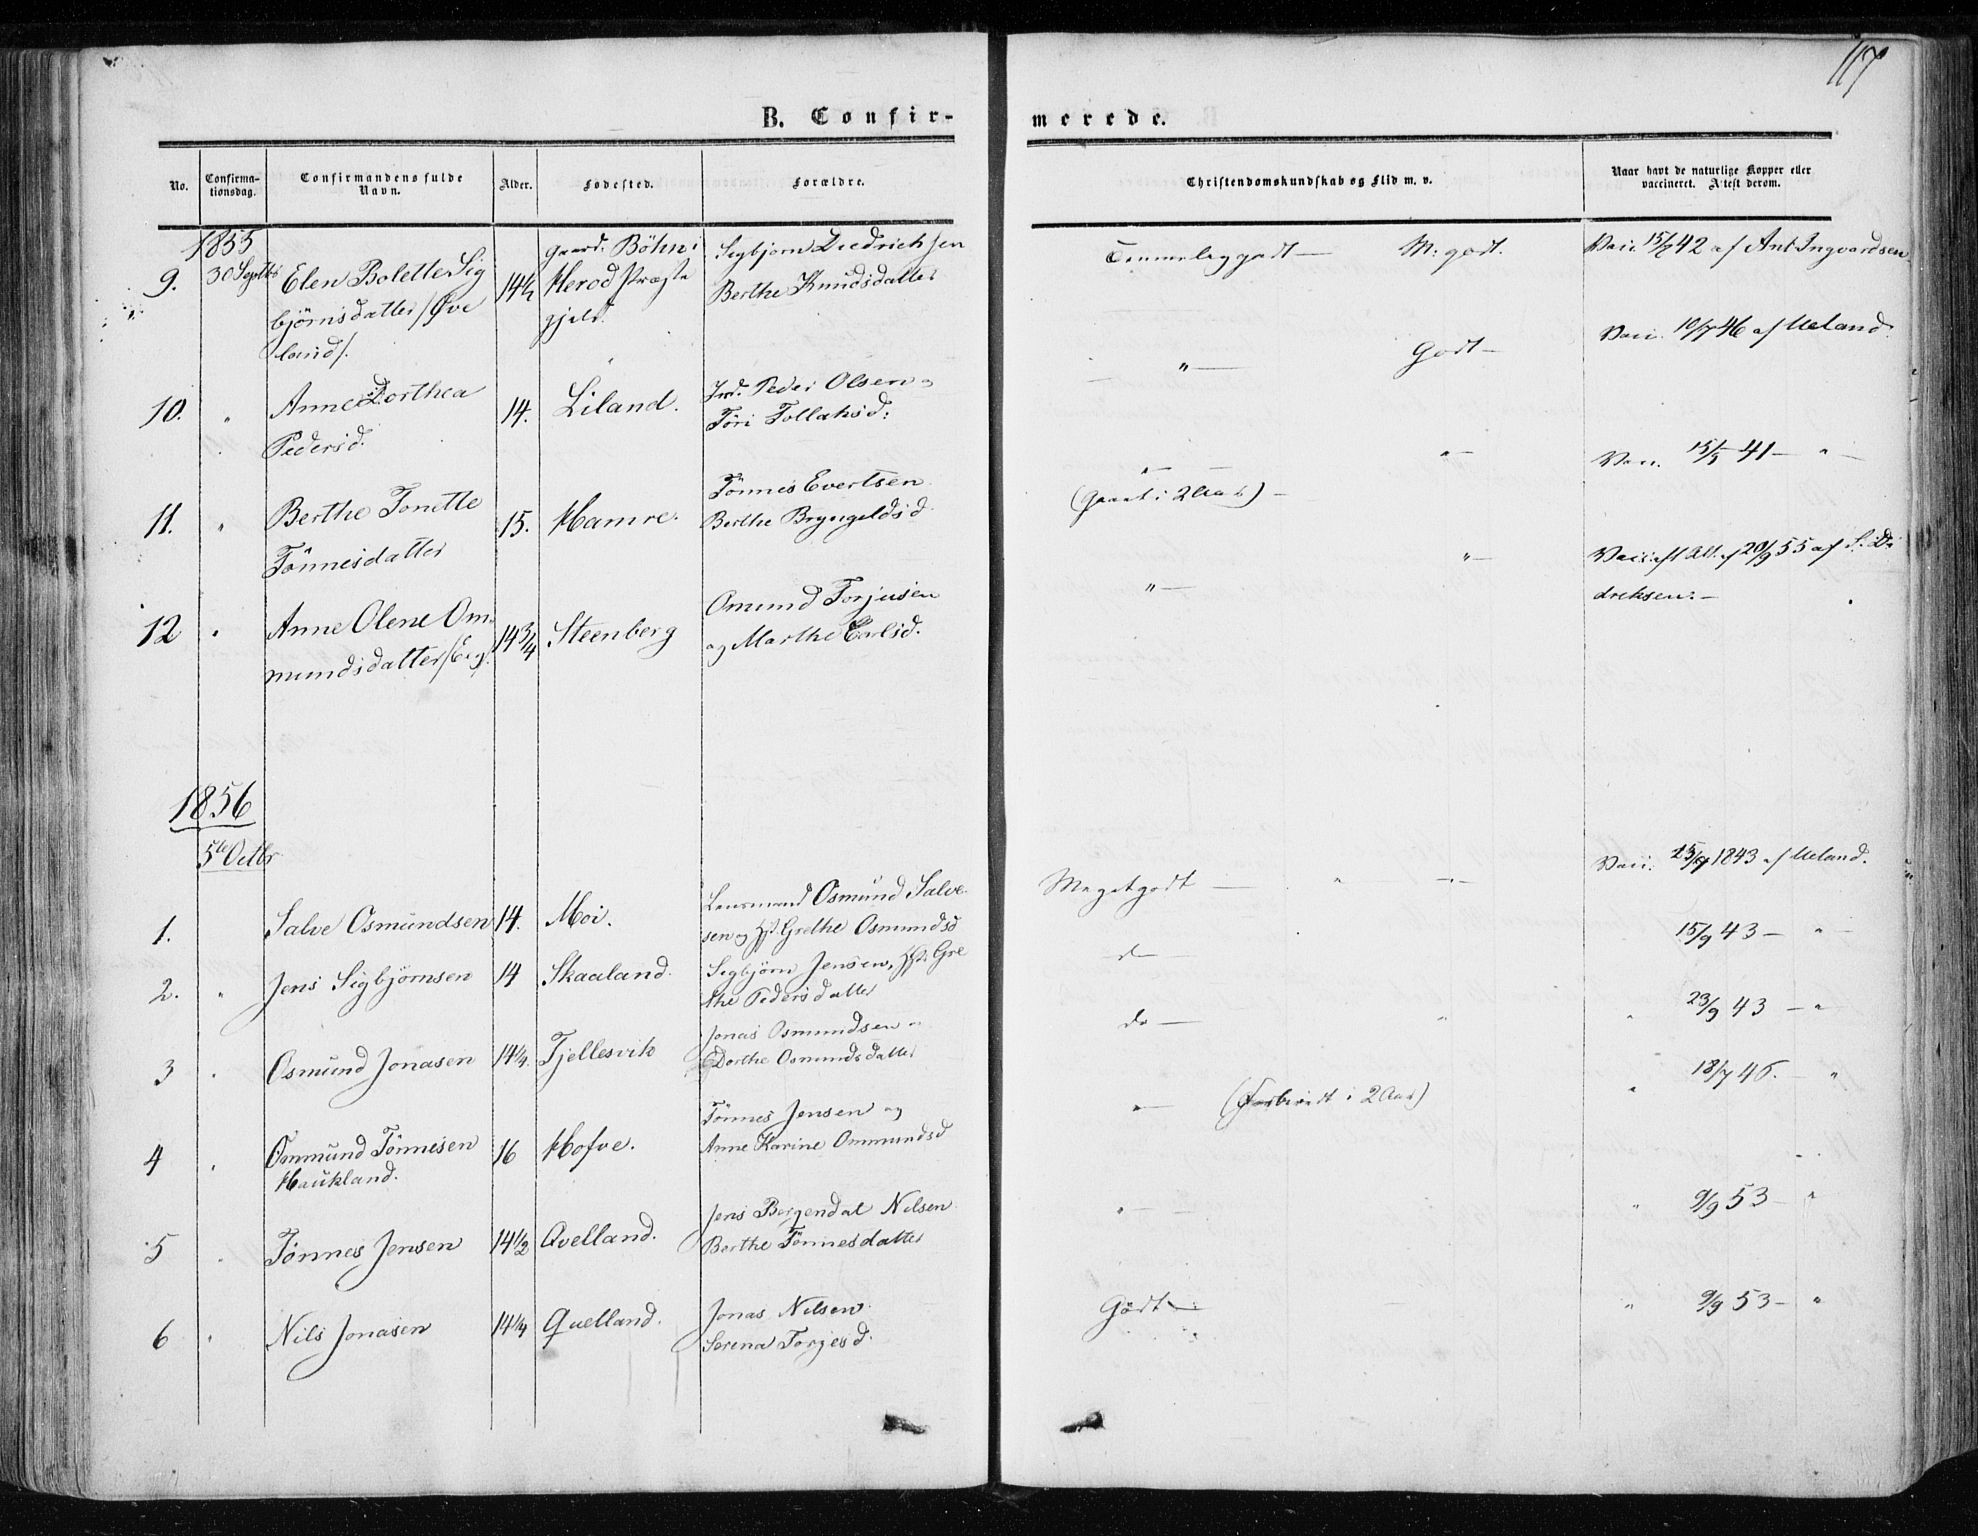 117
B. Confir-
merede.
No.
Confirma-
tionsdag.
Confirmandens fulde
Navn.
Alder.
Fødested.
Forældre.
Christendomskundskab og Flid m. v.
Naar havt de naturlige Kopper eller
vaccineret. Attest derom.
1855
9. 30 Septbr Elen Bolette Sig
bjørnsdatter /Øve
land/.
14½
Gaard. Böhn i
Herod Præste
gjeld.
Sigbjørn Diedrichsen
Berthe Knudsdatter
Temmelig godt — M: godt.
Vacc. 15/9 42 af Ant. Ingvardsen
10. " Anne Dorthea
Pedersd.
14. Liland.
Peder Olsen
Tori Tollaksd:
" — Godt —
Vacc. 10/7 46 af Ueland.
11. " Berthe Tonette
Tönnesdatter
15. Hamre.
Tönnes Evertsen
Berthe Bryngeldsd.
" —
i 2 Aar) —
" —
Vacc. 15/9 41 — " —
12 " Anne Olene Om
mundsdatter /Eeg/.
14¾ Steenberg
Omund Torjusen
og Marthe Carlsd.
" — " —
20/9 55 af S. Di
dreksen. —
1856
5te Octbr
1. Salve Osmundsen 14. Moi.
Lensmand Osmund Salve
sen og Hst. Grethe Osmundsd
Meget godt — " — " —
Vacc. 25/9 1843 af Ueland.
2. " Jens Sigbjørnsen 14 Skaaland.
Sigbjørn Jensen, Hst. Gre
the Pedersdatter
do —
15/9 43 — " —
3 " Osmund Jonasen 14¼ Tjellesvik
Jonas Osmundsen "
Dorthe Osmundsdatter
do — "
" 23/9 43 — "
4 " Ommund Tönnesen
Haukland.
16 Hofve.
Tönnes Jensen og
Anne Karine Ommundsd
" — (Forberedt i 2 Aar)
" 18/7 46. — "
5 " Tönnes Jensen 14½ Qvelland.
Jens Bergendal Nilsen
Berthe Tönnesdatter
" —
" 9/9 53 — "
6 " Nils Jonasen 14¼ Quelland.
Jonas Nilsen
Serena Torgesd.
Godt —
" 9/9 53 — "